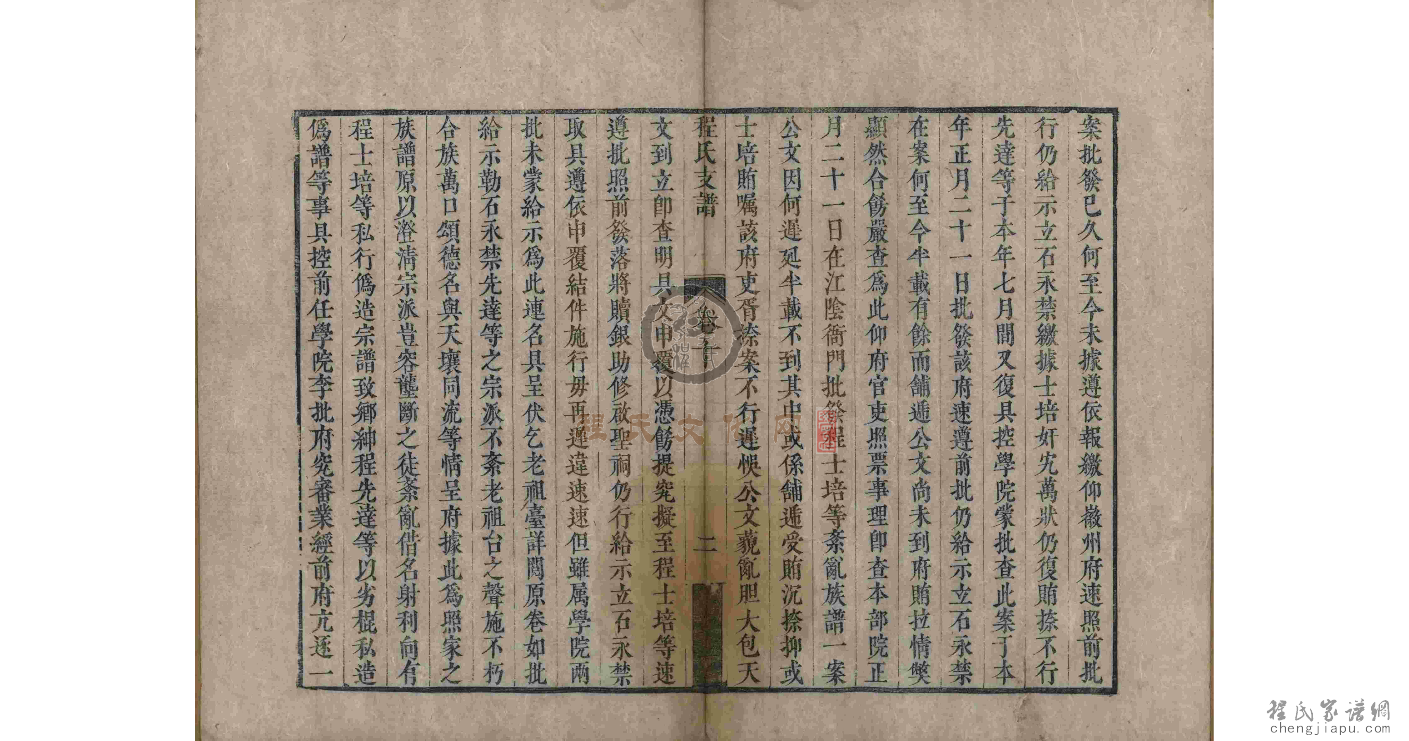 案批發已久何至今未據遵依報繳仰徽州府速照前批
行仍給示立石永禁繳據士培奸宄萬狀仍復賄捺不行
先達等于本年七月間又復具控學院蒙批查此案于本
年正月二十一日批發該府速遵前批仍給示立石永禁
在案何至今半載有餘而舖遞公文尚未到府賄拉情獘
顯然合飭嚴查為此仰府官吏照票事理即查本部院正
月二十一日在江陰衙門批發程士培等紊亂族譜一案
公文因何遲延半載不到其中或係舖遞受賄沉捺抑或
士培賄嘱該府吏胥捺案不行遲悞公文藐亂胆大包天
程氏支譜
卷
二
文到立即查明具文申覆以憑飭提究擬至程士培等速
遵批照前發落將贖銀助修啟聖祠仍行給示立石永禁
取具遵依申覆結件施行毋再遲違速速但雖属學院兩
批未蒙給示為此連名具呈伏乞老祖臺詳閱原卷如批
給示勒石永禁先達等之宗派不紊老祖台之聲施不朽
合族萬口頌德名與天壤同流等情呈府據此為照家之
族譜原以澄清宗派豈容壟斷之徒紊亂借名射利向有
程士培等私行僞造宗譜致鄉紳程先達等以劣棍私造
僞譜等事具控前任學院李批府究審業經前府亢逐一
程氏文化网
程氏家谱網
chengjiapu.com